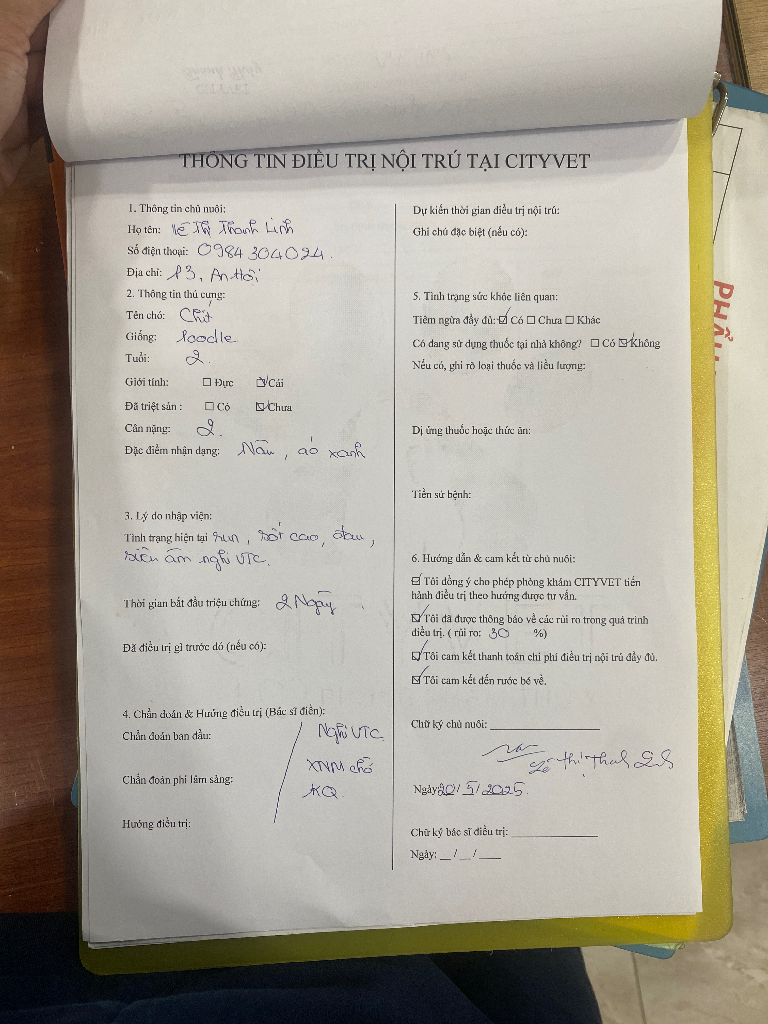 THÔNG TIN ĐIỀU TRỊ NỘI TRÚ TẠI CITYVET
1. Thông tin chủ nuôi:
Họ tên: Lê Thị Thanh Linh
Số điện thoại: 0984304024.
Địa chỉ: P3, An Hội
2. Thông tin thú cưng:
Tên chó: Chít
Giống: Poodle
Tuổi: 2
Giới tính: ☐ Đực ☑ Cái
Đã triệt sản : ☐ Có ☑ Chưa
Cân nặng: 2.
Đặc điểm nhận dạng: Nâu, áo xanh
3. Lý do nhập viện:
Tình trạng hiện tại run, sốt cao, đau,
siêu âm nghi VTC.
Thời gian bắt đầu triệu chứng: 2 Ngày
Đã điều trị gì trước đó (nếu có):
4. Chẩn đoán & Hướng điều trị (Bác sĩ điền):
Chẩn đoán ban đầu: Nghi VTC
Chẩn đoán phi lâm sàng: XNM chờ
KQ
Hướng điều trị:
Dự kiến thời gian điều trị nội trú:
Ghi chú đặc biệt (nếu có):
5. Tình trạng sức khỏe liên quan:
Tiêm ngừa đầy đủ: ☑ Có ☐ Chưa ☐ Khác
Có đang sử dụng thuốc tại nhà không? ☐ Có ☑ Không
Nếu có, ghi rõ loại thuốc và liều lượng:
Dị ứng thuốc hoặc thức ăn:
Tiền sử bệnh:
6. Hướng dẫn & cam kết từ chủ nuôi:
☑ Tôi đồng ý cho phép phòng khám CITYVET tiến
hành điều trị theo hướng được tư vấn.
☑ Tôi đã được thông báo về các rủi ro trong quá trình
điều trị. ( rủi ro: 30 %)
☑ Tôi cam kết thanh toán chi phí điều trị nội trú đầy đủ.
☑ Tôi cam kết đến rước bé về.
Chữ ký chủ nuôi: ____________________
Lê Thị Thanh Linh
Ngày: 20/ 5/ 2025.
Chữ ký bác sĩ điều trị: ________________
Ngày: __ / __ / ____